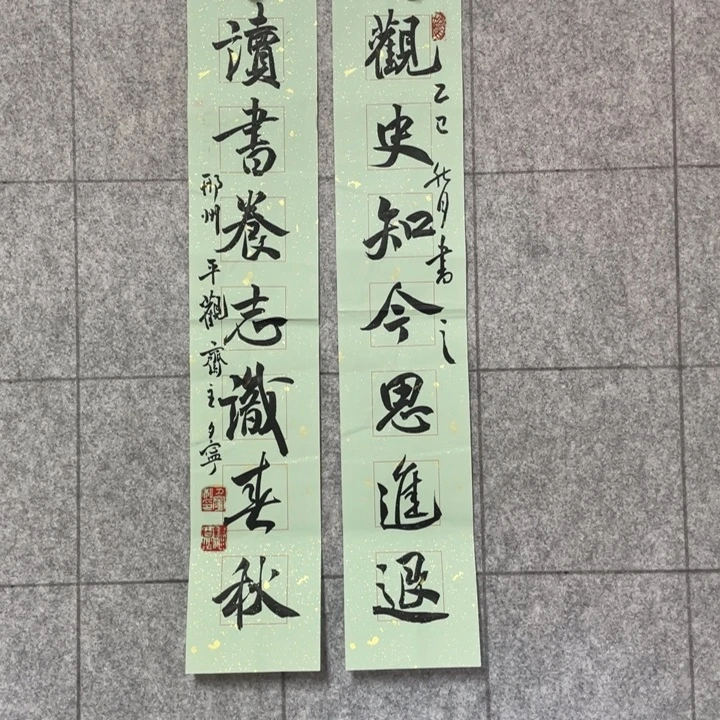 觀史知今思進退
乙巳秋月書之
讀書養志識春秋
邢州平觀齋主夕寧